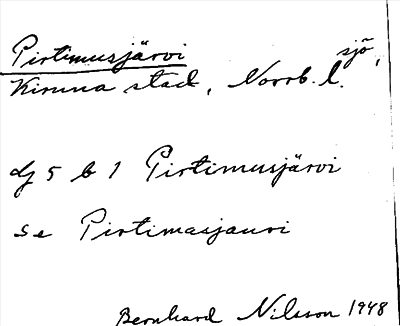 Pirtimusjärvi sjö,
Kiruna stad, Norrb. l.
dj 5 b 1 Pirtimusjärvi
se Pirtimasjauri
Bernhard Nilsson 1948